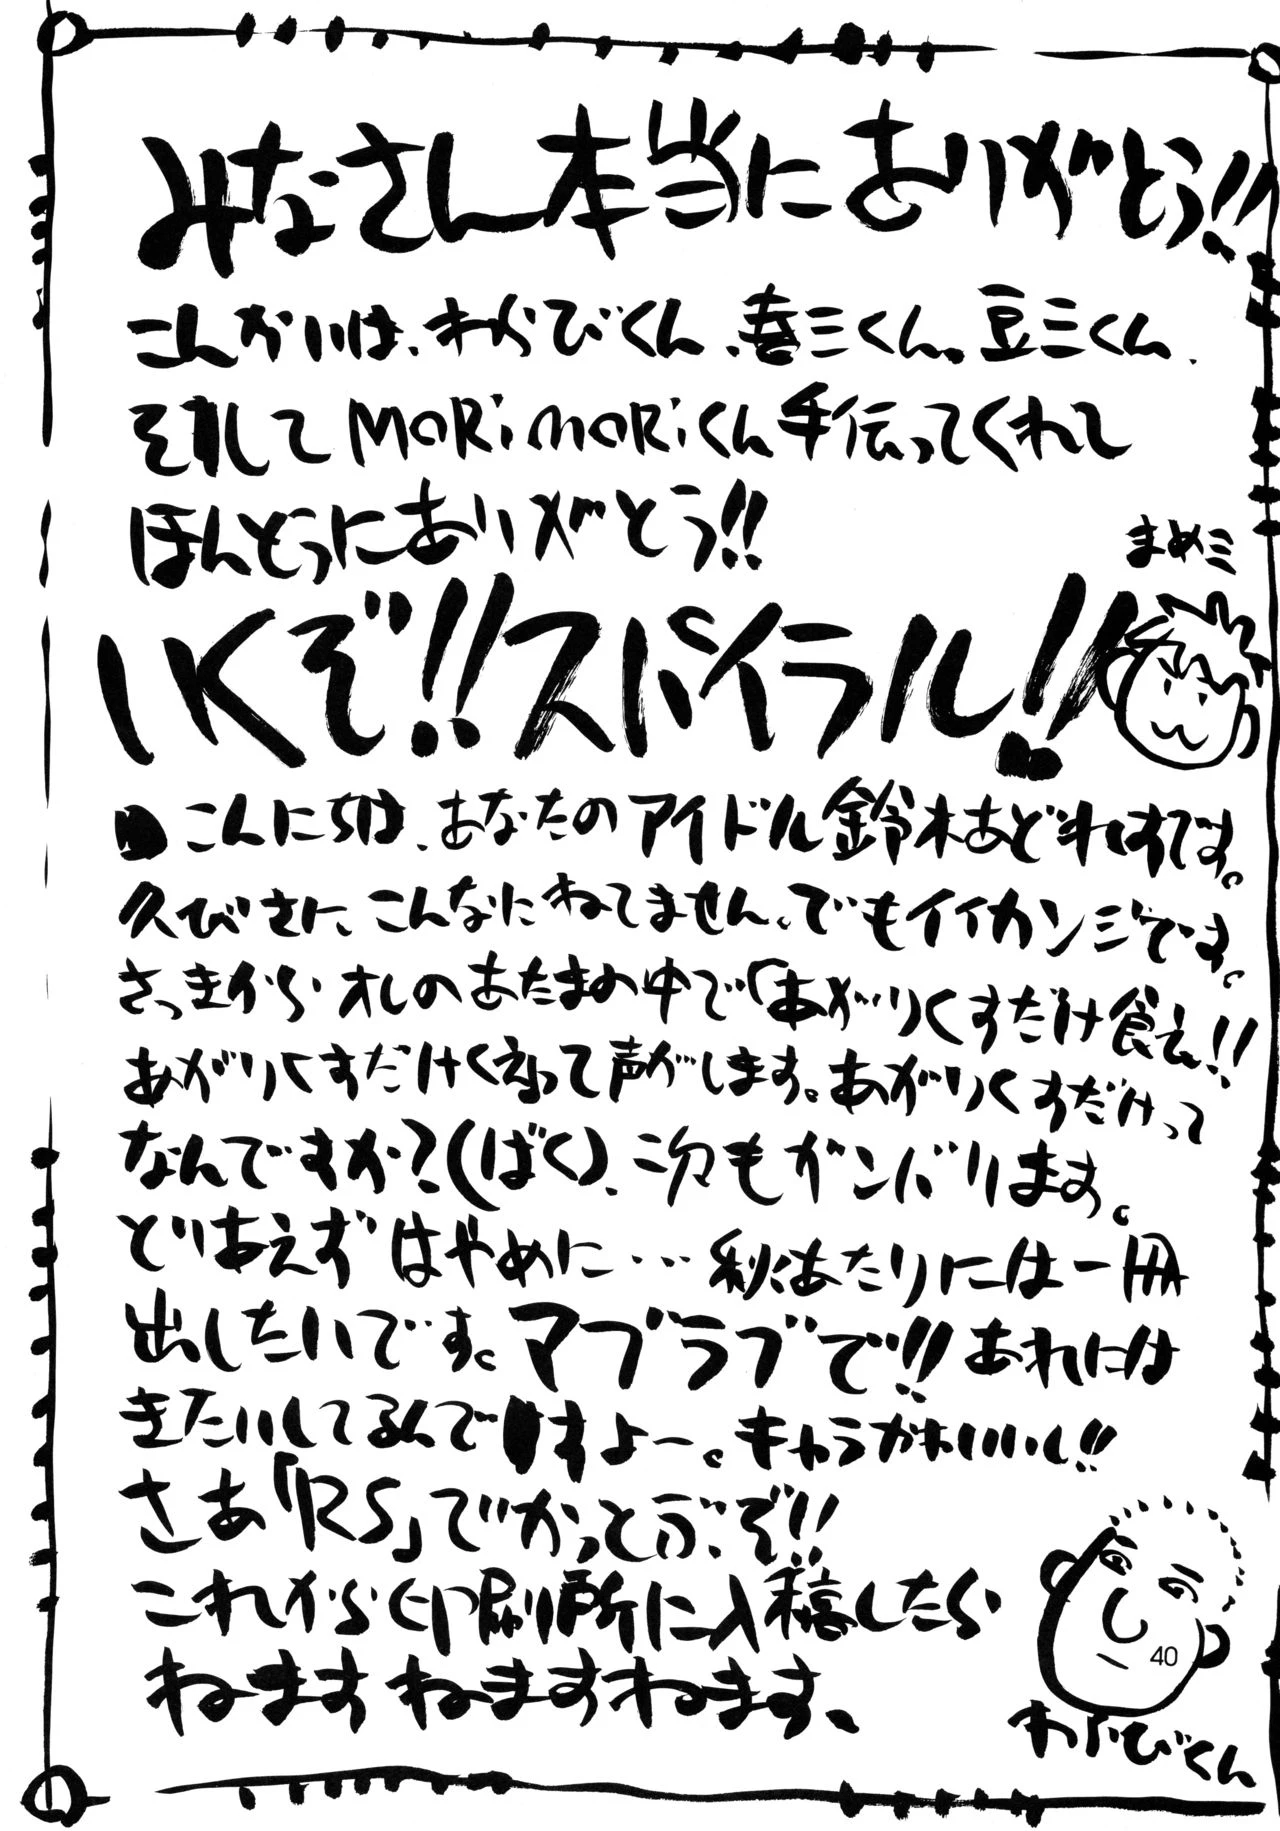 みなさん本当にありがとう!!
こんかいは、わらびくん、春三くん。豆三くん、
そして MORiMORiくん手伝ってくれて
ほんどうにありがとう!!
まめ三
いくぞ!!スパイラル!!
こんにちは、あなたのアイドル鈴木あどれすです。
久びさに、こんなにねてません、でもイイカンジです。
さっきからオレのあたまの中で「あがりくすだけ食え!!
あがりくすだけくえって声がします。あがりくすだけって
なんですか?(ばく)、次もガンバリます。
とりあえずはやめに…秋くあたりには一冊
出したいです。マブラブで!!あれには
きたいしてるんですよー。キャラかわいいし!!
さあ「RS」でかっとぶぞ!!
これから印刷所に入稿したら
ねますねますねます、
40
わらびくん